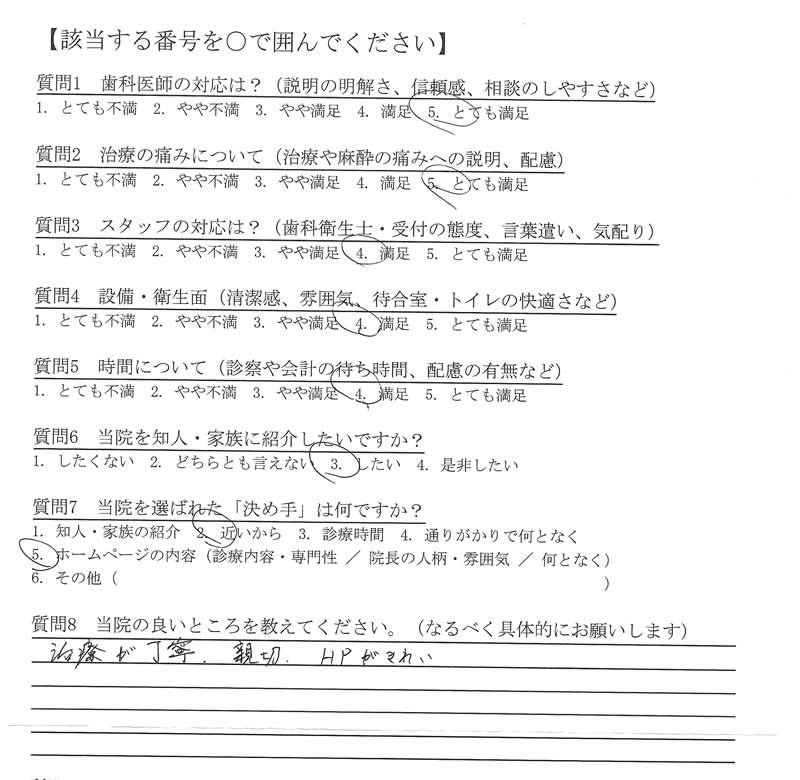 【該当する番号を〇で囲んでください】
質問1 歯科医師の対応は？（説明の明解さ、信頼感、相談のしやすさなど）
1. とても不満 2. やや不満 3. やや満足 4. 満足 5. とても満足
質問2 治療の痛みについて（治療や麻酔の痛みへの説明、配慮）
1. とても不満 2. やや不満 3. やや満足 4. 満足 5. とても満足
質問3 スタッフの対応は？（歯科衛生士・受付の態度、言葉遣い、気配り）
1. とても不満 2. やや不満 3. やや満足 4. 満足 5. とても満足
質問4 設備・衛生面（清潔感、雰囲気、待合室・トイレの快適さなど）
1. とても不満 2. やや不満 3. やや満足 4. 満足 5. とても満足
質問5 時間について（診察や会計の待ち時間、配慮の有無など）
1. とても不満 2. やや不満 3. やや満足 4. 満足 5. とても満足
質問6 当院を知人・家族に紹介したいですか？
1. したくない 2. どちらとも言えない 3. したい 4. 是非したい
質問7 当院を選ばれた「決め手」は何ですか？
1. 知人・家族の紹介 2. 近いから 3. 診療時間 4. 通りがかりで何となく
5. ホームページの内容（診療内容・専門性 ／ 院長の人柄・雰囲気 ／ 何となく）
6. その他（ ）
質問8 当院の良いところを教えてください。（なるべく具体的にお願いします）
治療が丁寧、親切、HPがきれい